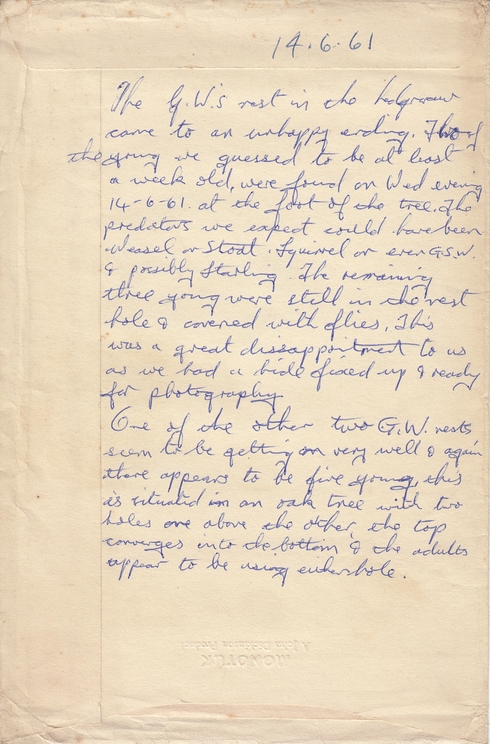 14.6.61
The G.W.s nest in the hedgerow
came to an unhappy ending. Two of
the young we guessed to be at least
a week old, were found on Wed evening
14-6-61. at the foot of the tree. The
predators we expect could have been
Weasel or Stoat. Squirrel or even G.S.W.
& possibly Starling. The remaining
three young were still in the nest
hole & covered with flies. This
was a great dissappointment to us
as we had a hide fixed up & ready
for photography
One of the other two G.W. nests
seem to be getting on very well & again
there appears to be five young, this
is situated in an oak tree with two
holes one above the other, the top
converges into the bottom & the adults
appear to be using either hole.
MONOTUK
A John Dickinson Product